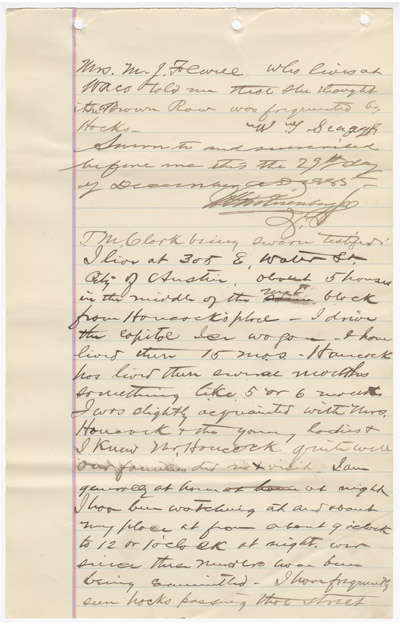 Mrs. M. J. Fewell who lives at
Waco told me that she thought
the Brown Row was frequented by
Hocks - W Y Scaggs
Sworn to and subscribed
before me this the 29th day
of December A D 1885
J. P.
T. M. Clark being sworn testified:
I live at 305 E. Water St.
City of Austin. about 5 houses
in the middle of the next block
from Hancock's place - I drive
the Capitol Ice wagon - I have
lived there 15 mos - Hancock
has lived there several months
something like 5 or 6 months
I was slightly acquainted with Mrs.
Hancock & the young ladies &
I knew Mr. Hancock quite well
our families did not visit. I am
generally at home at night
I have been watching at and about
my place at from about 9 o'clock
to 12 or 1 o'clock at night. ever
since these murders have been
being committed - I have frequently
seen hocks passing that street